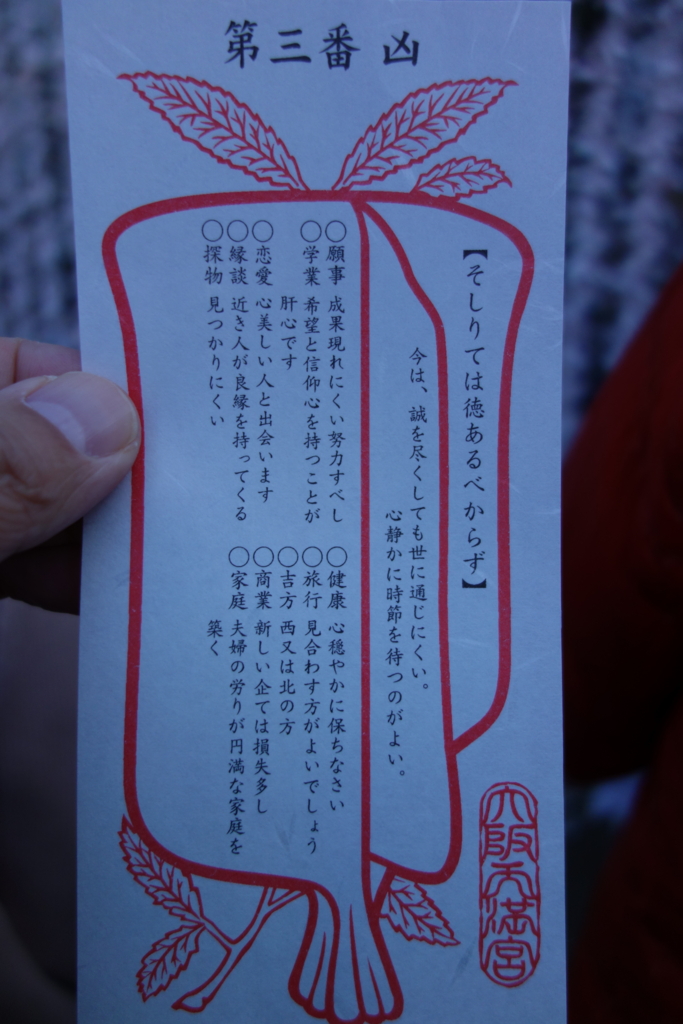 第三番 凶
【そしりては徳あるべからず】
今は、誠を尽くしても世に通じにくい。
心静かに時節を待つのがよい。
○願事 成果現れにくい努力すべし
○学業 希望と信仰心を持つことが
肝心です
○恋愛 心美しい人と出会います
○縁談 近き人が良縁を持ってくる
○探物 見つかりにくい
○健康 心穏やかに保ちなさい
○旅行 見合わす方がよいでしょう
○吉方 西又は北の方
○商業 新しい企ては損失多し
○家庭 夫婦の労りが円満な家庭を
築く
大阪天満宮